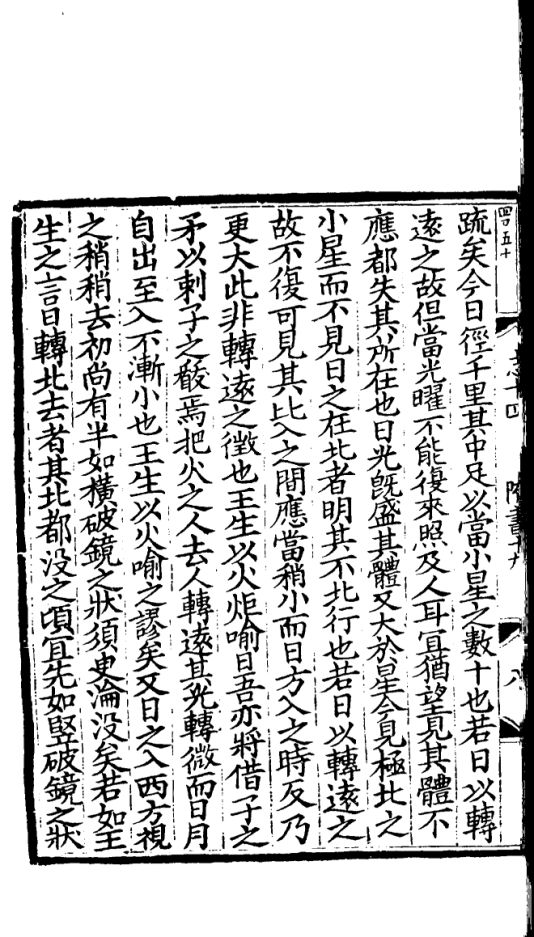 四百五十
志十四
隋書十九
八
疏矣今日徑千里其中足以當小星之數十也若日以轉
遠之故但當光曜不能復來照及人耳宜猶望見其體不
應都失其所在也日光旣盛其體又大於星今見極北之
小星而不見日之在北者明其不北行也若日以轉遠之
故不復可見其比入之間應當稍小而日方入之時反乃
更大此非轉遠之徵也王生以火炬喻日吾亦將借子之
矛以刺子之𢧵焉把火之人去人轉遠其光轉微而日月
自出至入不漸小也王生以火喻之謬矣又日之入西方視
之稍稍去初尚有半如橫破鏡之狀須臾淪没矣若如王
生之言日轉北去者其北都没之頃宜先如竪破鏡之狀